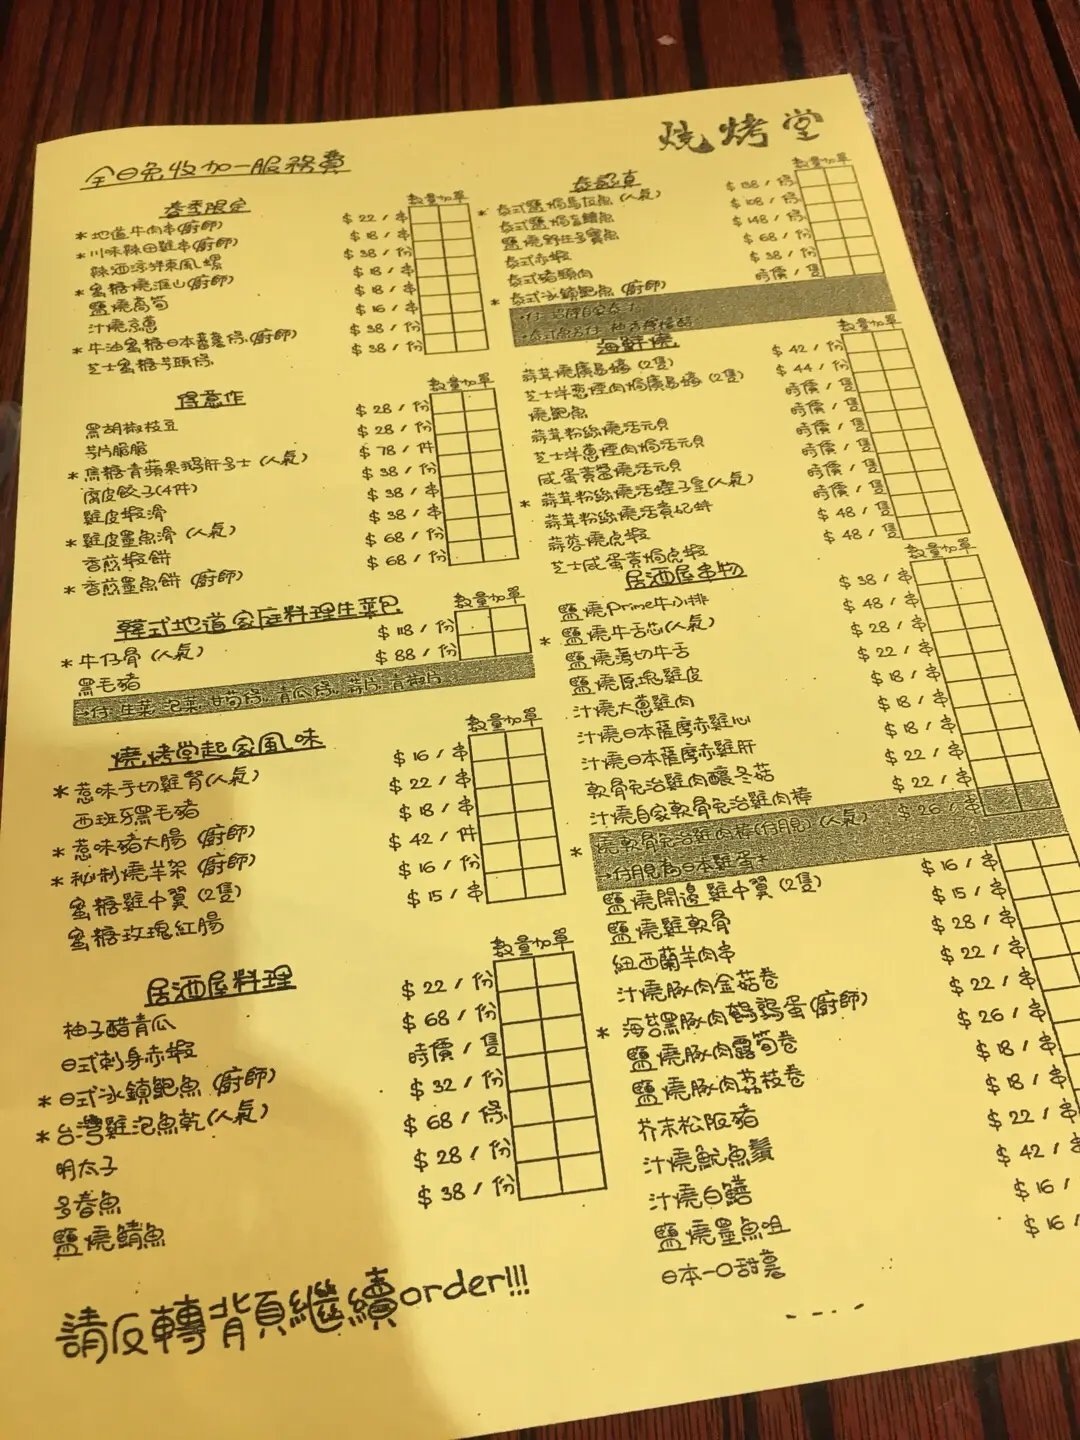 燒烤堂
全日免收加一服務費
春季限定
數量 加單
*地道牛肉串(廚師) $22/串
*川味辣田雞串(廚師) $18/串
辣酒涼拌東風螺 $38/份
*蜜糖燒淮山(廚師) $18/串
鹽燒萵筍 $18/串
汁燒京蔥 $16/串
*牛油蜜糖日本蕃薯條(廚師) $38/份
芝士蜜糖芋頭條 $38/份
得意作
數量 加單
黑胡椒枝豆 $28/份
芍片脆脆 $28/份
*焦糖青蘋果鵝肝多士(人氣) $78/件
腐皮餃子(4件) $38/份
雞皮蝦滑 $38/串
*雞皮墨魚滑(人氣) $38/串
香煎蝦餅 $68/份
*香煎墨魚餅(廚師) $68/份
韓式地道家庭料理生菜包
數量 加單
*牛仔骨(人氣) $118/份
黑毛豬 $88/份
→仔 生菜, 泡菜, 甘筍條, 青瓜條, 蒜片, 青椒片
燒烤堂起家風味
數量 加單
*惹味手切雞腎(人氣) $16/串
西班牙黑毛豬 $22/串
*惹味豬大腸(廚師) $18/串
*秘制燒羊架(廚師) $42/件
蜜糖雞中翼(2隻) $16/份
蜜糖玫瑰紅腸 $15/串
居酒屋料理
數量 加單
柚子醋青瓜 $22/份
日式刺身赤蝦 $68/份
*日式冰鎮鮑魚(廚師) 時價/隻
*台灣雞泡魚乾(人氣) $32/份
明太子 $68/條
多春魚 $28/份
鹽燒鯖魚 $38/份
請反轉背頁繼續order!!!
泰認真
數量 加單
*泰式鹽焗烏頭魚(人氣) $138/條
泰式鹽焗盲鰽魚 $108/條
鹽燒野生多寶魚 $148/條
泰式赤蝦 $68/份
泰式豬頸肉 $38/份
*泰式冰鎮鮑魚(廚師) 時價/隻
海鮮燒
數量 加單
蒜茸燒廣島蠔(2隻) $42/份
芝士洋蔥煙肉焗廣島蠔(2隻) $44/份
燒鮑魚 時價/隻
蒜茸粉絲燒活元貝 時價/隻
芝士洋蔥煙肉焗活元貝 時價/隻
咸蛋黃醬燒活元貝 時價/隻
*蒜茸粉絲燒活蟶子皇(人氣) 時價/隻
蒜茸粉絲燒活貴妃蚌 時價/隻
蒜蓉燒虎蝦 $48/隻
芝士咸蛋黃焗虎蝦 $48/隻
居酒屋串物
數量 加單
鹽燒Prime牛小排 $38/串
*鹽燒牛舌芯(人氣) $48/串
鹽燒薄切牛舌 $28/串
鹽燒原塊雞皮 $22/串
汁燒大蔥雞肉 $18/串
汁燒日本薩摩赤雞心 $18/串
汁燒日本薩摩赤雞肝 $18/串
軟骨免治雞肉釀冬菇 $22/串
汁燒自家軟骨免治雞肉棒 $22/串
*燒軟骨免治雞肉棒(仔月見)(人氣) $26/串
→仔月見為日本雞蛋汁
鹽燒開邊雞中翼(2隻) $16/串
鹽燒雞軟骨 $15/串
紐西蘭羊肉串 $28/串
汁燒豚肉金菇卷 $22/串
*海苔黑豚肉鵪鶉蛋(廚師) $22/串
鹽燒豚肉露筍卷 $26/串
鹽燒豚肉荔枝卷 $18/串
芥末松阪豬 $18/串
汁燒魷魚鬚 $22/串
汁燒白鱔 $42/串
鹽燒墨魚咀 $16/
日本一口甜薯 $16/